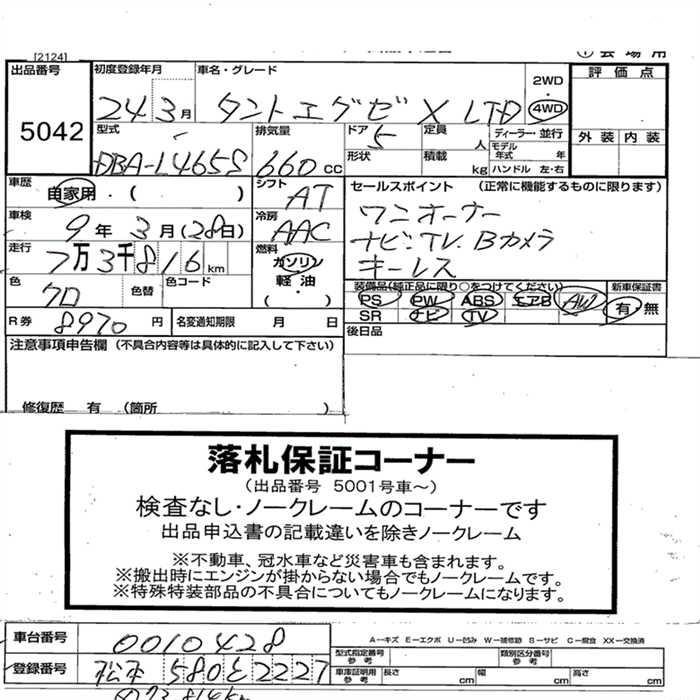 [2124]
出品番号
5042
初度登録年月
24 3月
車名・グレード
タントエグゼ X LTD
2WD
・
4WD
評価点
外装 内装
型式
DBA-L465S
排気量
660 cc
ドア 5
形状
定員 人
積載 kg
ディーラー・並行
モデル年式 年
ハンドル 左・右
車歴
自家用・( )
シフト
AT
車検
9年 3月(28日)
冷房
AAC
走行
7万3千816km
燃料
ガソリン
軽油・
( )
色
クロ
色替
色コード
R券 8970 円
名変通知期限 月 日
セールスポイント (正常に機能するものに限ります)
ワンオーナー
ナビ.TV.Bカメラ
キーレス
装備品(純正品に限り○をつけてください)
PS PW ABS エアB AW
SR ナビ TV
新車保証書
有・無
後日品
注意事項申告欄 (不具合内容等は具体的に記入して下さい)
修復歴 有 (箇所 )
落札保証コーナー
(出品番号 5001号車〜)
検査なし・ノークレームのコーナーです
出品申込書の記載違いを除きノークレーム
※不動車、冠水車など災害車も含まれます。
※搬出時にエンジンが掛からない場合でもノークレームです。
※特殊特装部品の不具合についてもノークレームになります。
車台番号 0010428
登録番号 松本 580 と 2227
A−キズ E−エクボ U−凹み W−補修跡 S−サビ C−腐食 XX−交換済
型式指定番号 参考
類別区分番号 参考
車庫証明用 参考
長さ cm 幅 cm 高さ cm